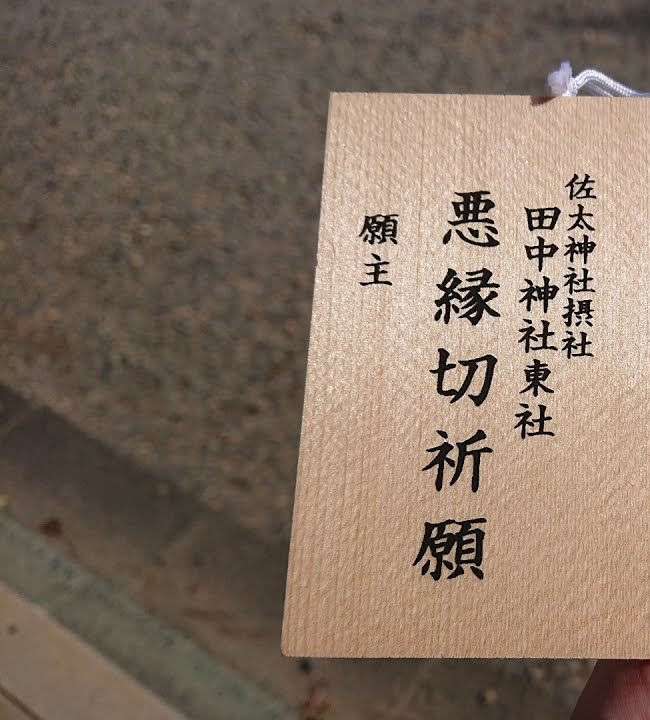 佐太神社摂社
田中神社東社
悪縁切祈願
願主